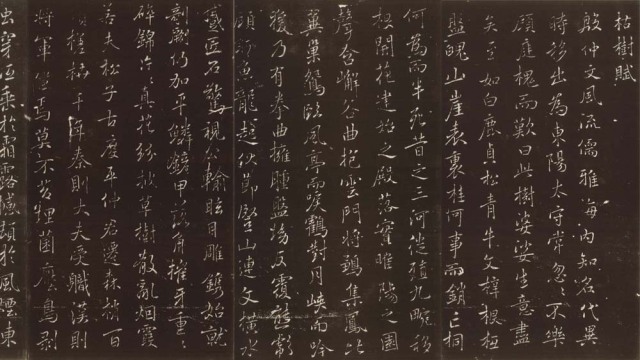 枯樹賦
殷仲文風流儒雅海內知名代異
時移出為東陽太守常忽忽不樂
顧庭槐而歎曰此樹婆娑生意盡
矣至如白鹿貞松青牛文梓根柢
盤魄山崖表裏桂何事而銷亡桐
何為而半死昔之三河徙殖九畹移
根開花建始之殿落實睢陽之園
聲含嶰谷曲抱雲門將鶵集鳳比
翼巢鴛臨風亭而唳鶴對月峽而吟
猨乃有拳曲擁腫盤坳反覆熊彪
顧盼魚龍起伏節竪山連文橫水
蹙匠石驚視公輸眩目雕鐫始就
剞劂仍加平鱗鏟甲落角摧牙重重
碎錦片片真花紛披草樹散亂烟霞
若夫松子古度平仲君遷森梢百
頃槎枿千年秦則大夫受職漢則
將軍坐焉莫不苔埋菌壓鳥剝
虫穿低垂於霜露撼頓於風煙東